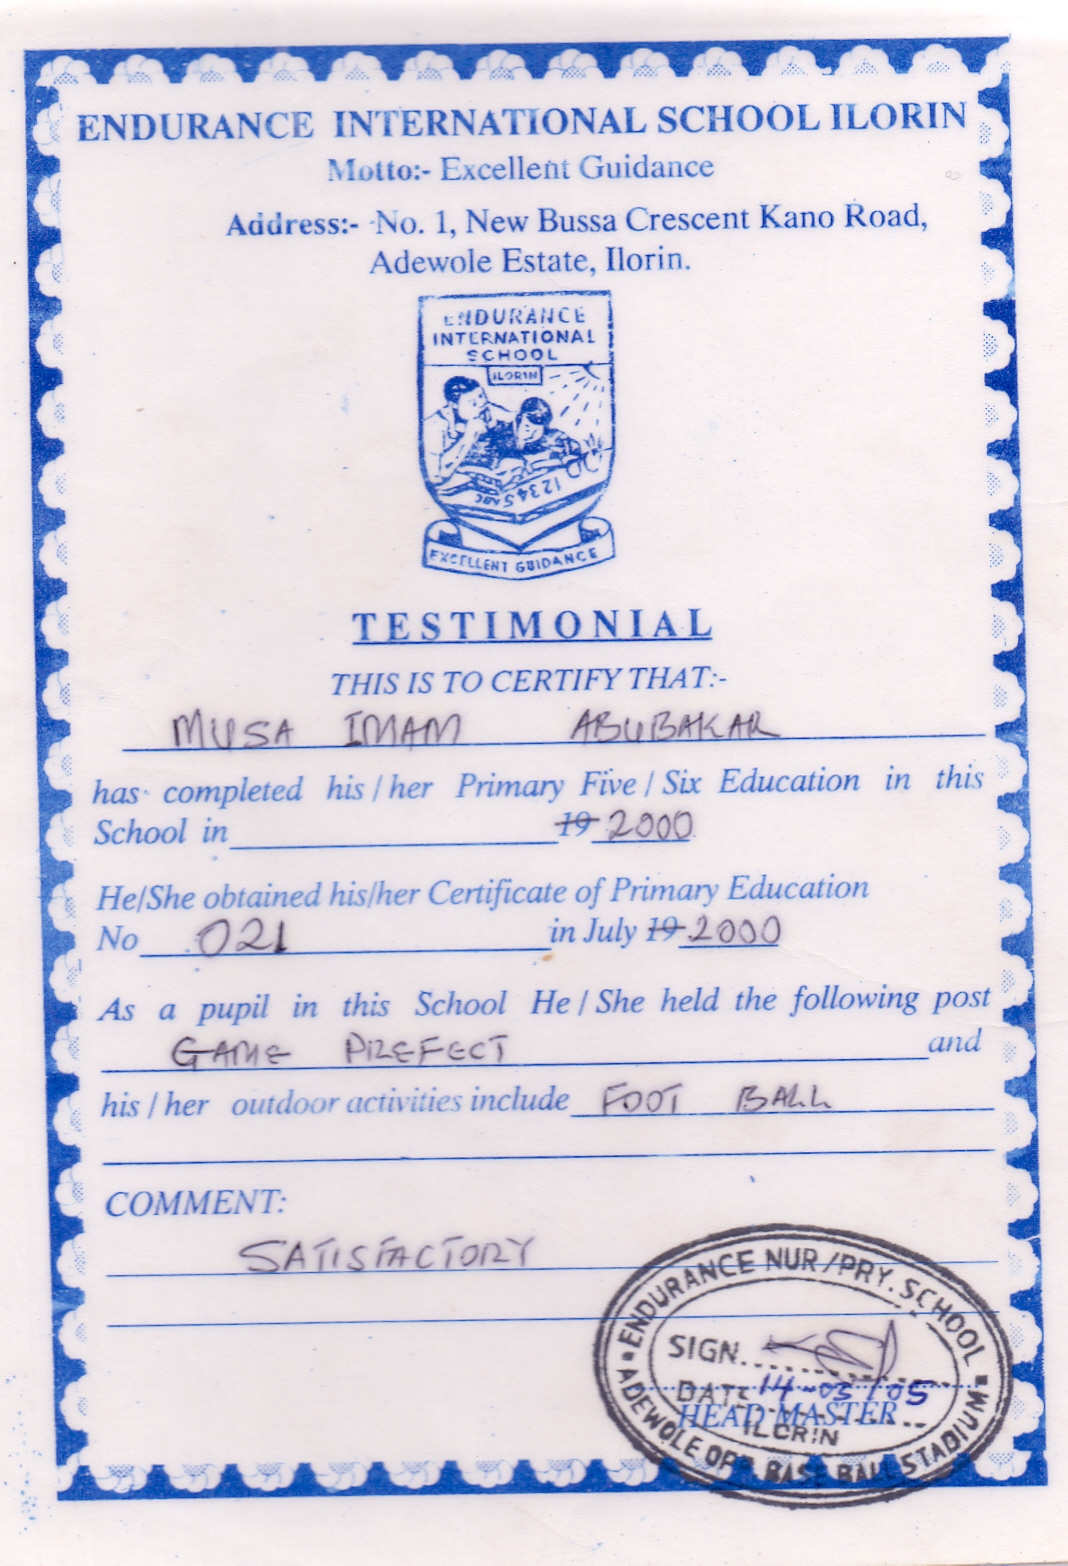 ENDURANCE INTERNATIONAL SCHOOL ILORIN
Motto:- Excellent Guidance
Address:- No. 1, New Bussa Crescent Kano Road,
Adewole Estate, Ilorin.
ENDURANCE
INTERNATIONAL
SCHOOL
ILORIN
12345 ABC
EXCELLENT GUIDANCE
TESTIMONIAL
THIS IS TO CERTIFY THAT:-
MUSA IMAM ABUBAKAR
has completed his / her Primary Five / Six Education in this
School in 19 2000
He/She obtained his/her Certificate of Primary Education
No 021 in July 19 2000
As a pupil in this School He / She held the following post
GAME PREFECT and
his / her outdoor activities include FOOT BALL
COMMENT:
SATISFACTORY
ENDURANCE NUR/PRY. SCHOOL
SIGN.
DATE 14-03-05
HEAD MASTER
ILORIN
ADEWOLE OPP. BASE BALL STADIUM